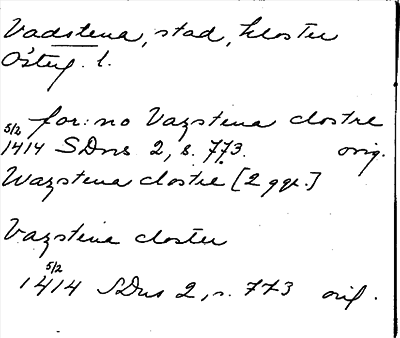 Vadstena, stad, kloster
Österg. l.
for: no Vazstena clostre
5/2 1414 SDns 2, s. 773. orig.
Wazstena clostre [2 ggr.]
Vazstena closter
5/2
1414 SDns 2, s. 773 orig.